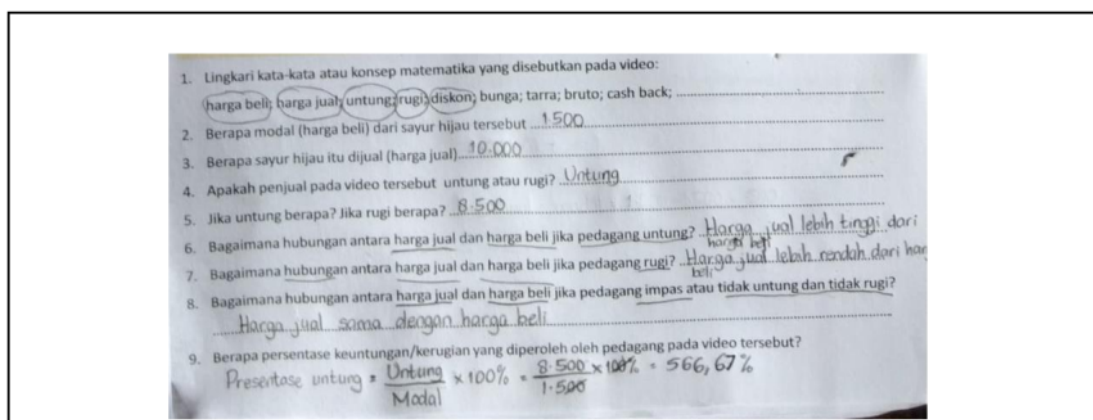 1. Lingkari kata-kata atau konsep matematika yang disebutkan pada video:
harga beli; harga jual; untung; rugi; diskon; bunga; tarra; bruto; cash back;
2. Berapa modal (harga beli) dari sayur hijau tersebut 1.500
3. Berapa sayur hijau itu dijual (harga jual) 10.000
4. Apakah penjual pada video tersebut untung atau rugi? Untung
5. Jika untung berapa? Jika rugi berapa? 8.500
6. Bagaimana hubungan antara harga jual dan harga beli jika pedagang untung? Harga jual lebih tinggi dari
harga beli
7. Bagaimana hubungan antara harga jual dan harga beli jika pedagang rugi? Harga jual lebih rendah dari har
beli
8. Bagaimana hubungan antara harga jual dan harga beli jika pedagang impas atau tidak untung dan tidak rugi?
Harga jual sama dengan harga beli
9. Berapa persentase keuntungan/kerugian yang diperoleh oleh pedagang pada video tersebut?
Presentase untung = Untung/Modal × 100% = 8.500/1.500 × 100% = 566,67%